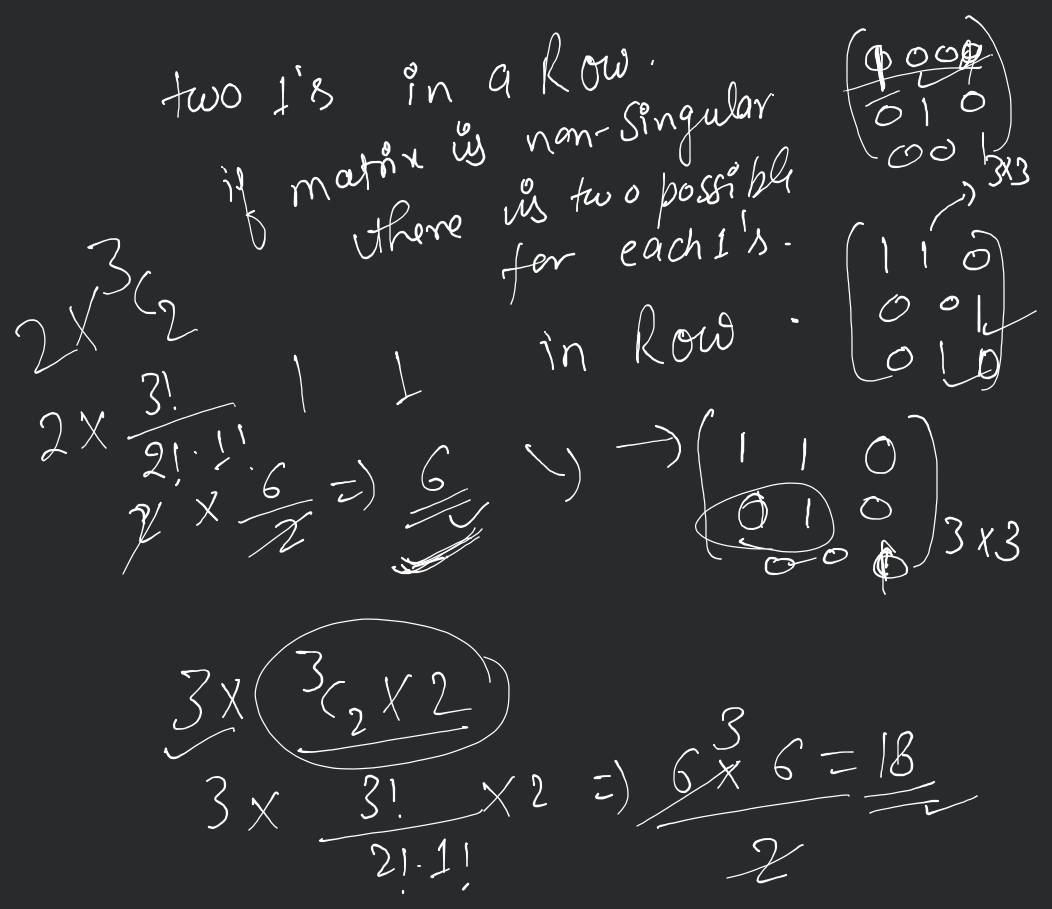 two 1's in a Row.
if matrix is non-singular
there is two possible
for each 1's.
in Row.
0 1 0
0 0 1
3x3
1 1 0
0 0 1
0 1 0
2 x ³C₂
2 x 3! / 2!.1!
2 x 6 / 2 => 6
1 1
→ 1 1 0
0 1 0
0 0 1
3 x 3
3 x ³C₂ x 2
3 x 3! / 2!.1! x 2 => 6 x 6 / 2 = 18
3